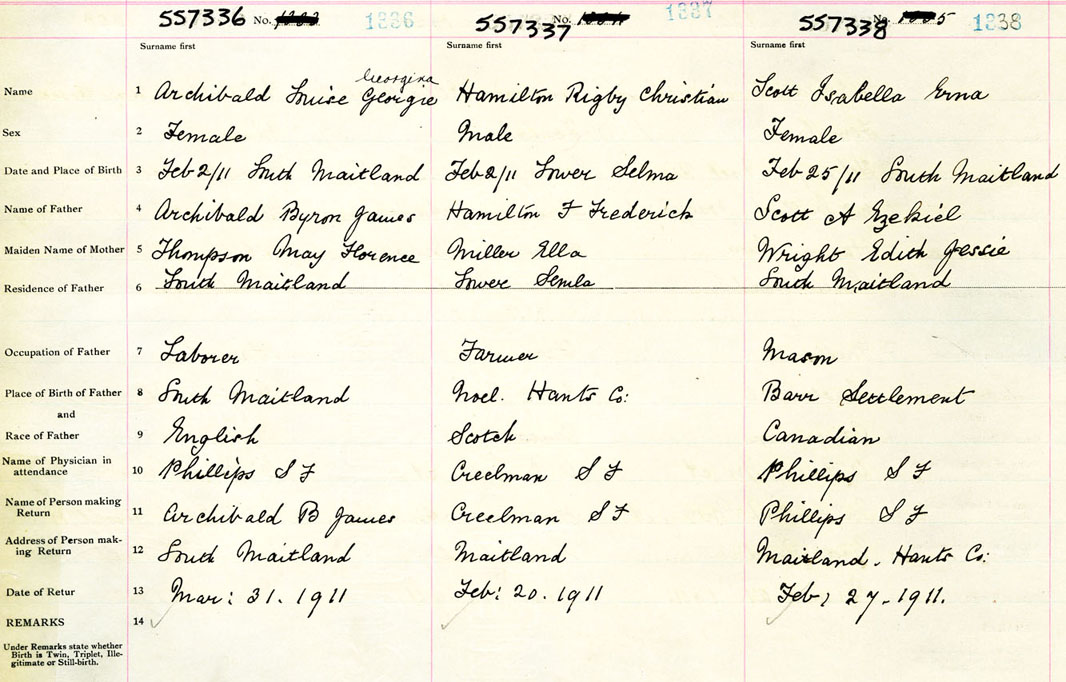 557336 No. 1336 557337 No. 1337 557338 No. 1338
Surname first Surname first Surname first
Georgina
Name 1 Archibald Louise Georgie Hamilton Rigby Christian Scott Isabella Erna
Sex 2 Female Male Female
Date and Place of Birth 3 Feb 2/11 South Maitland Feb 2/11 Lower Selma Feb 25/11 South Maitland
Name of Father 4 Archibald Byron James Hamilton F Frederick Scott A Ezekiel
Maiden Name of Mother 5 Thompson May Florence Miller Ella Wright Edith Jessie
Residence of Father 6 South Maitland Lower Semla South Maitland
Occupation of Father 7 Laborer Farmer Mason
Place of Birth of Father 8 South Maitland Noel. Hants Co: Barr Settlement
and
Race of Father 9 English Scotch Canadian
Name of Physician in
attendance 10 Phillips S F Creelman S F Phillips S F
Name of Person making
Return 11 Archibald B James Creelman S F Phillips S F
Address of Person mak-
ing Return 12 South Maitland Maitland Maitland. Hants Co:
Date of Retur 13 Mar: 31. 1911 Feb: 20. 1911 Feb: 27. 1911.
REMARKS 14
Under Remarks state whether
Birth is Twin, Triplet, Ille-
gitimate or Still-birth.